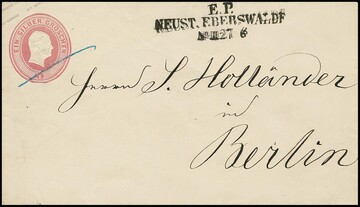 EIN SILBER GROSCHEN
E.P.
NEUST. EBERSWALDE
No III 27 6
Herrn S. Holländer
in
Berlin